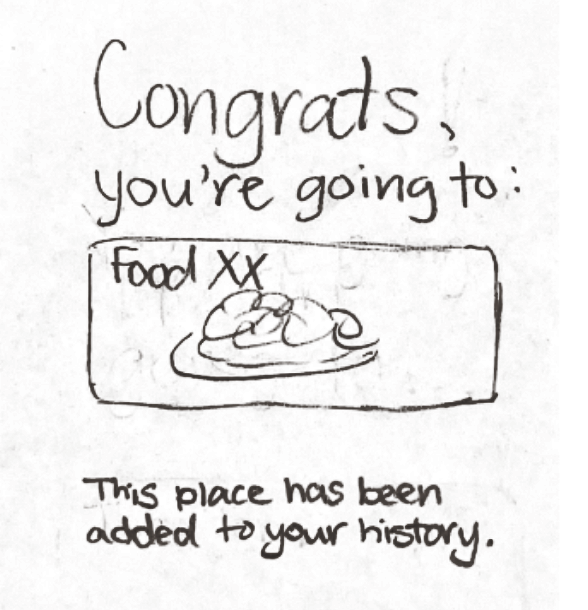 Congrats,
you're going to:
Food XX
This place has been
added to your history.